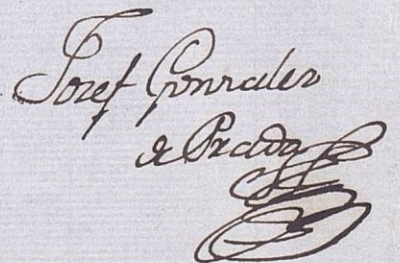 Josef Gonzalez
de Prada